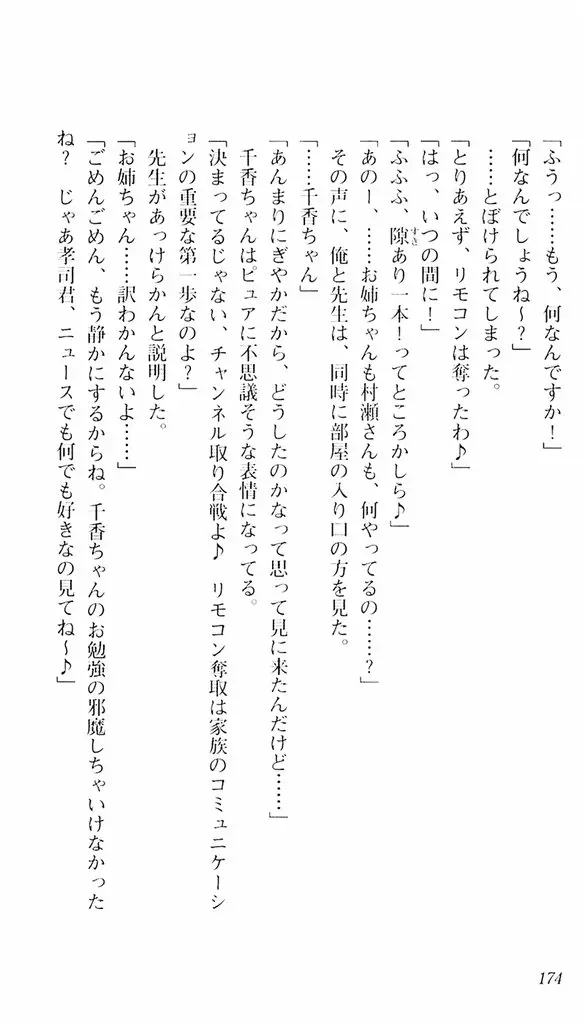 「ふうっ……もう、何なんですか！」
「何なんでしょうね～？」
……とぼけられてしまった。
「とりあえず、リモコンは奪ったわ♪」
「はっ、いつの間に！」
「ふふふ、隙あり一本！ってところかしら♪」
すき
あのー、……お姉ちゃんも村瀬さんも、何やってるの……？」
その声に、俺と先生は、同時に部屋の入り口の方を見た。
「……千香ちゃん」
「あんまりにぎやかだから、どうしたのかなって思って見に来たんだけど……」
千香ちゃんはピュアに不思議そうな表情になってる。
「決まってるじゃない、チャンネル取り合戦よ♪　リモコン奪取は家族のコミュニケーシ
ョンの重要な第一歩なのよ？」
先生があっけらかんと説明した。
「お姉ちゃん……訳わかんないよ……」
「ごめんごめん、もう静かにするからね。千香ちゃんのお勉強の邪魔しちゃいけなかった
ね？　じゃあ孝司君、ニュースでも何でも好きなの見てね～♪」
174